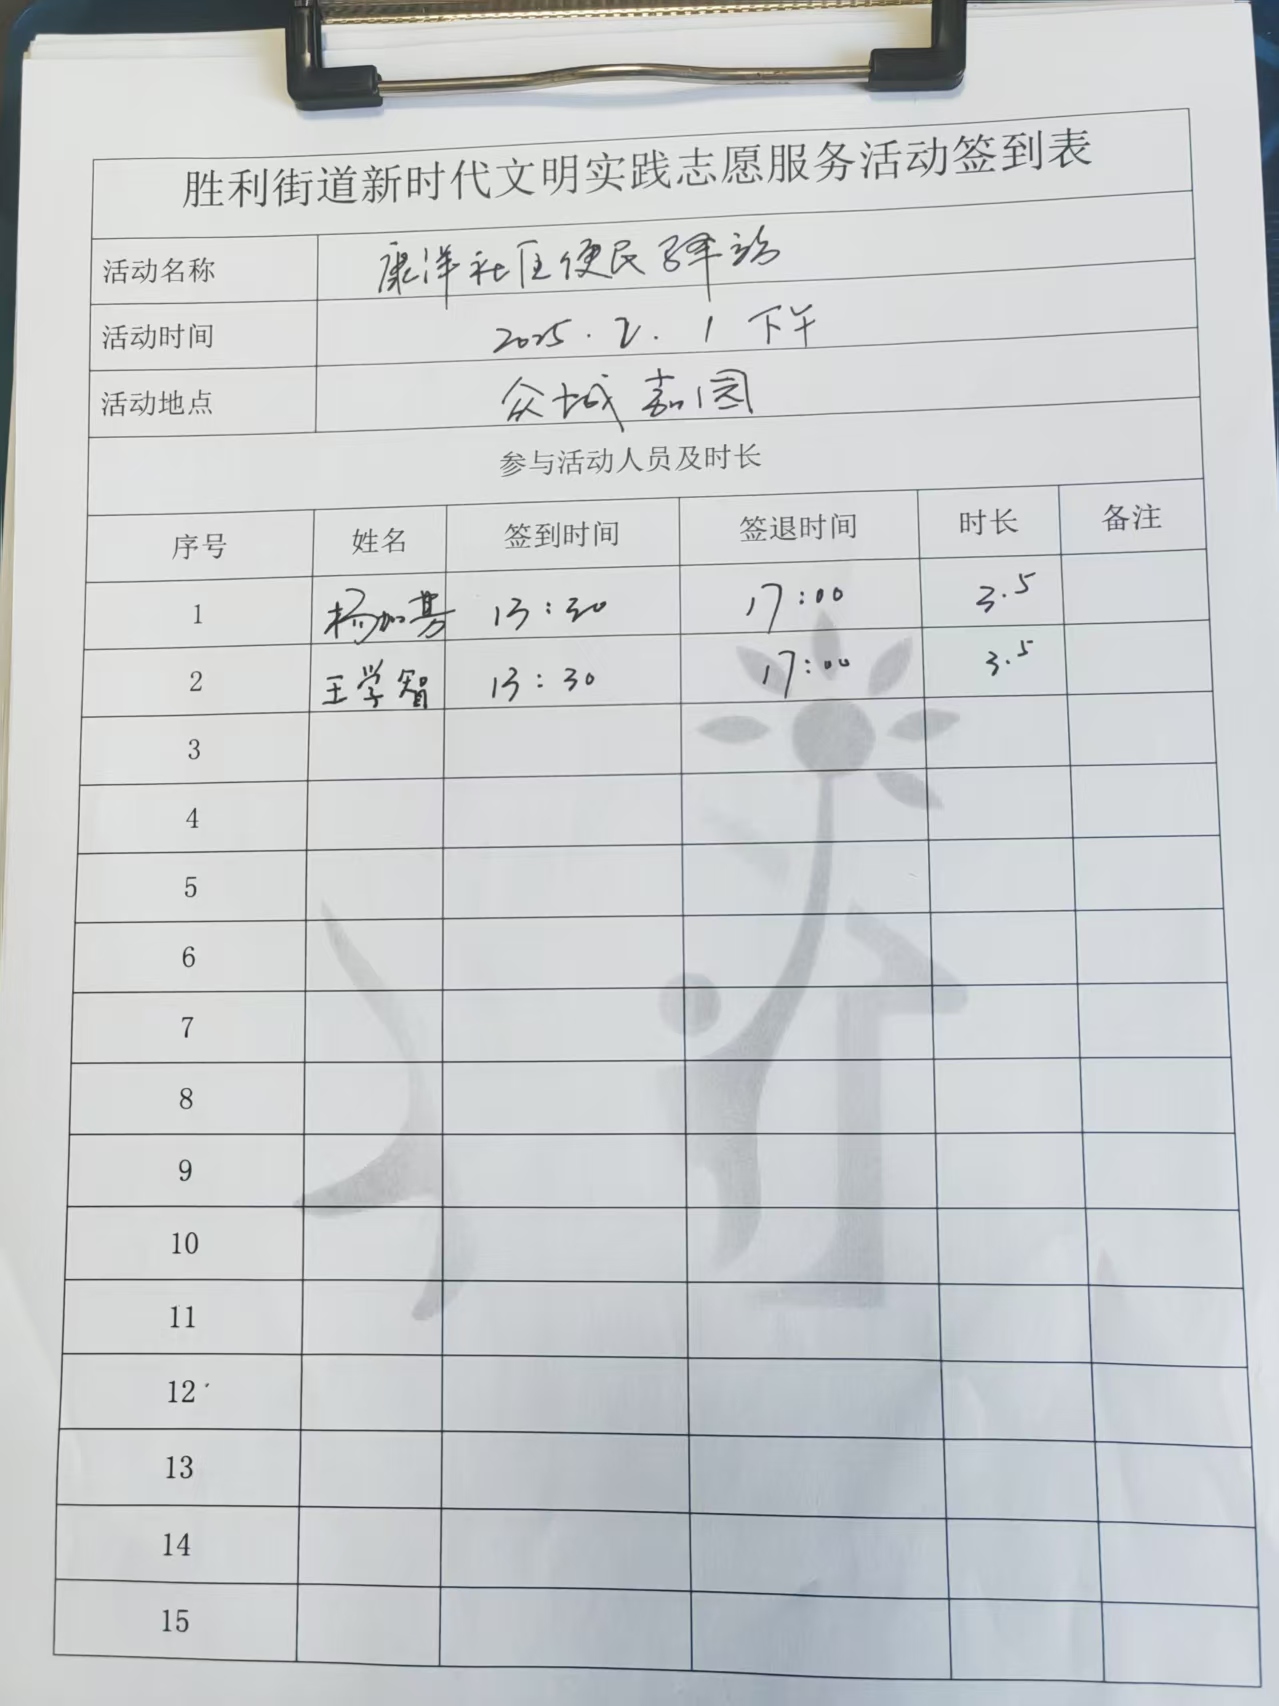 胜利街道新时代文明实践志愿服务活动签到表
活动名称 康洋社区便民驿站
活动时间 2025.2.1 下午
活动地点 众城嘉园
参与活动人员及时长
序号 姓名 签到时间 签退时间 时长 备注
1 杨加 13:30 17:00 3.5
2 王学智 13:30 17:00 3.5
3
4
5
6
7
8
9
10
11
12
13
14
15